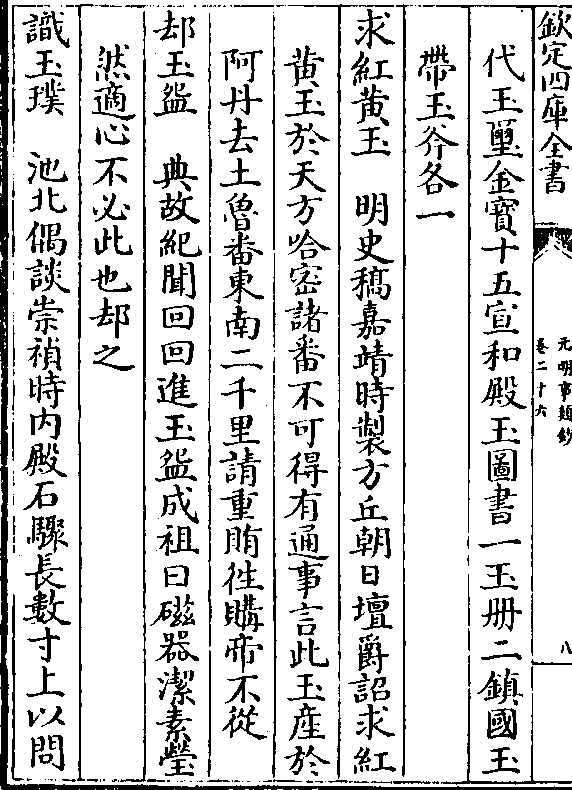 欽定四庫全書
元明事類鈔
卷二十六
八
代玉璽金寳十五宣和殿玉圖書一玉册二鎮國玉
帶玉斧各一
求紅黄玉 明史稿嘉靖時製方丘朝日壇爵詔求紅
黄玉於天方哈宻諸番不可得有通事言此玉産於
阿丹去土魯番東南二千里請重賄徃購帝不從
却玉盌 典故紀聞回回進玉盌成祖曰磁器潔素瑩
然適心不必此也却之
識玉璞 池北偶談崇禎時内殿石驟長數寸上以問